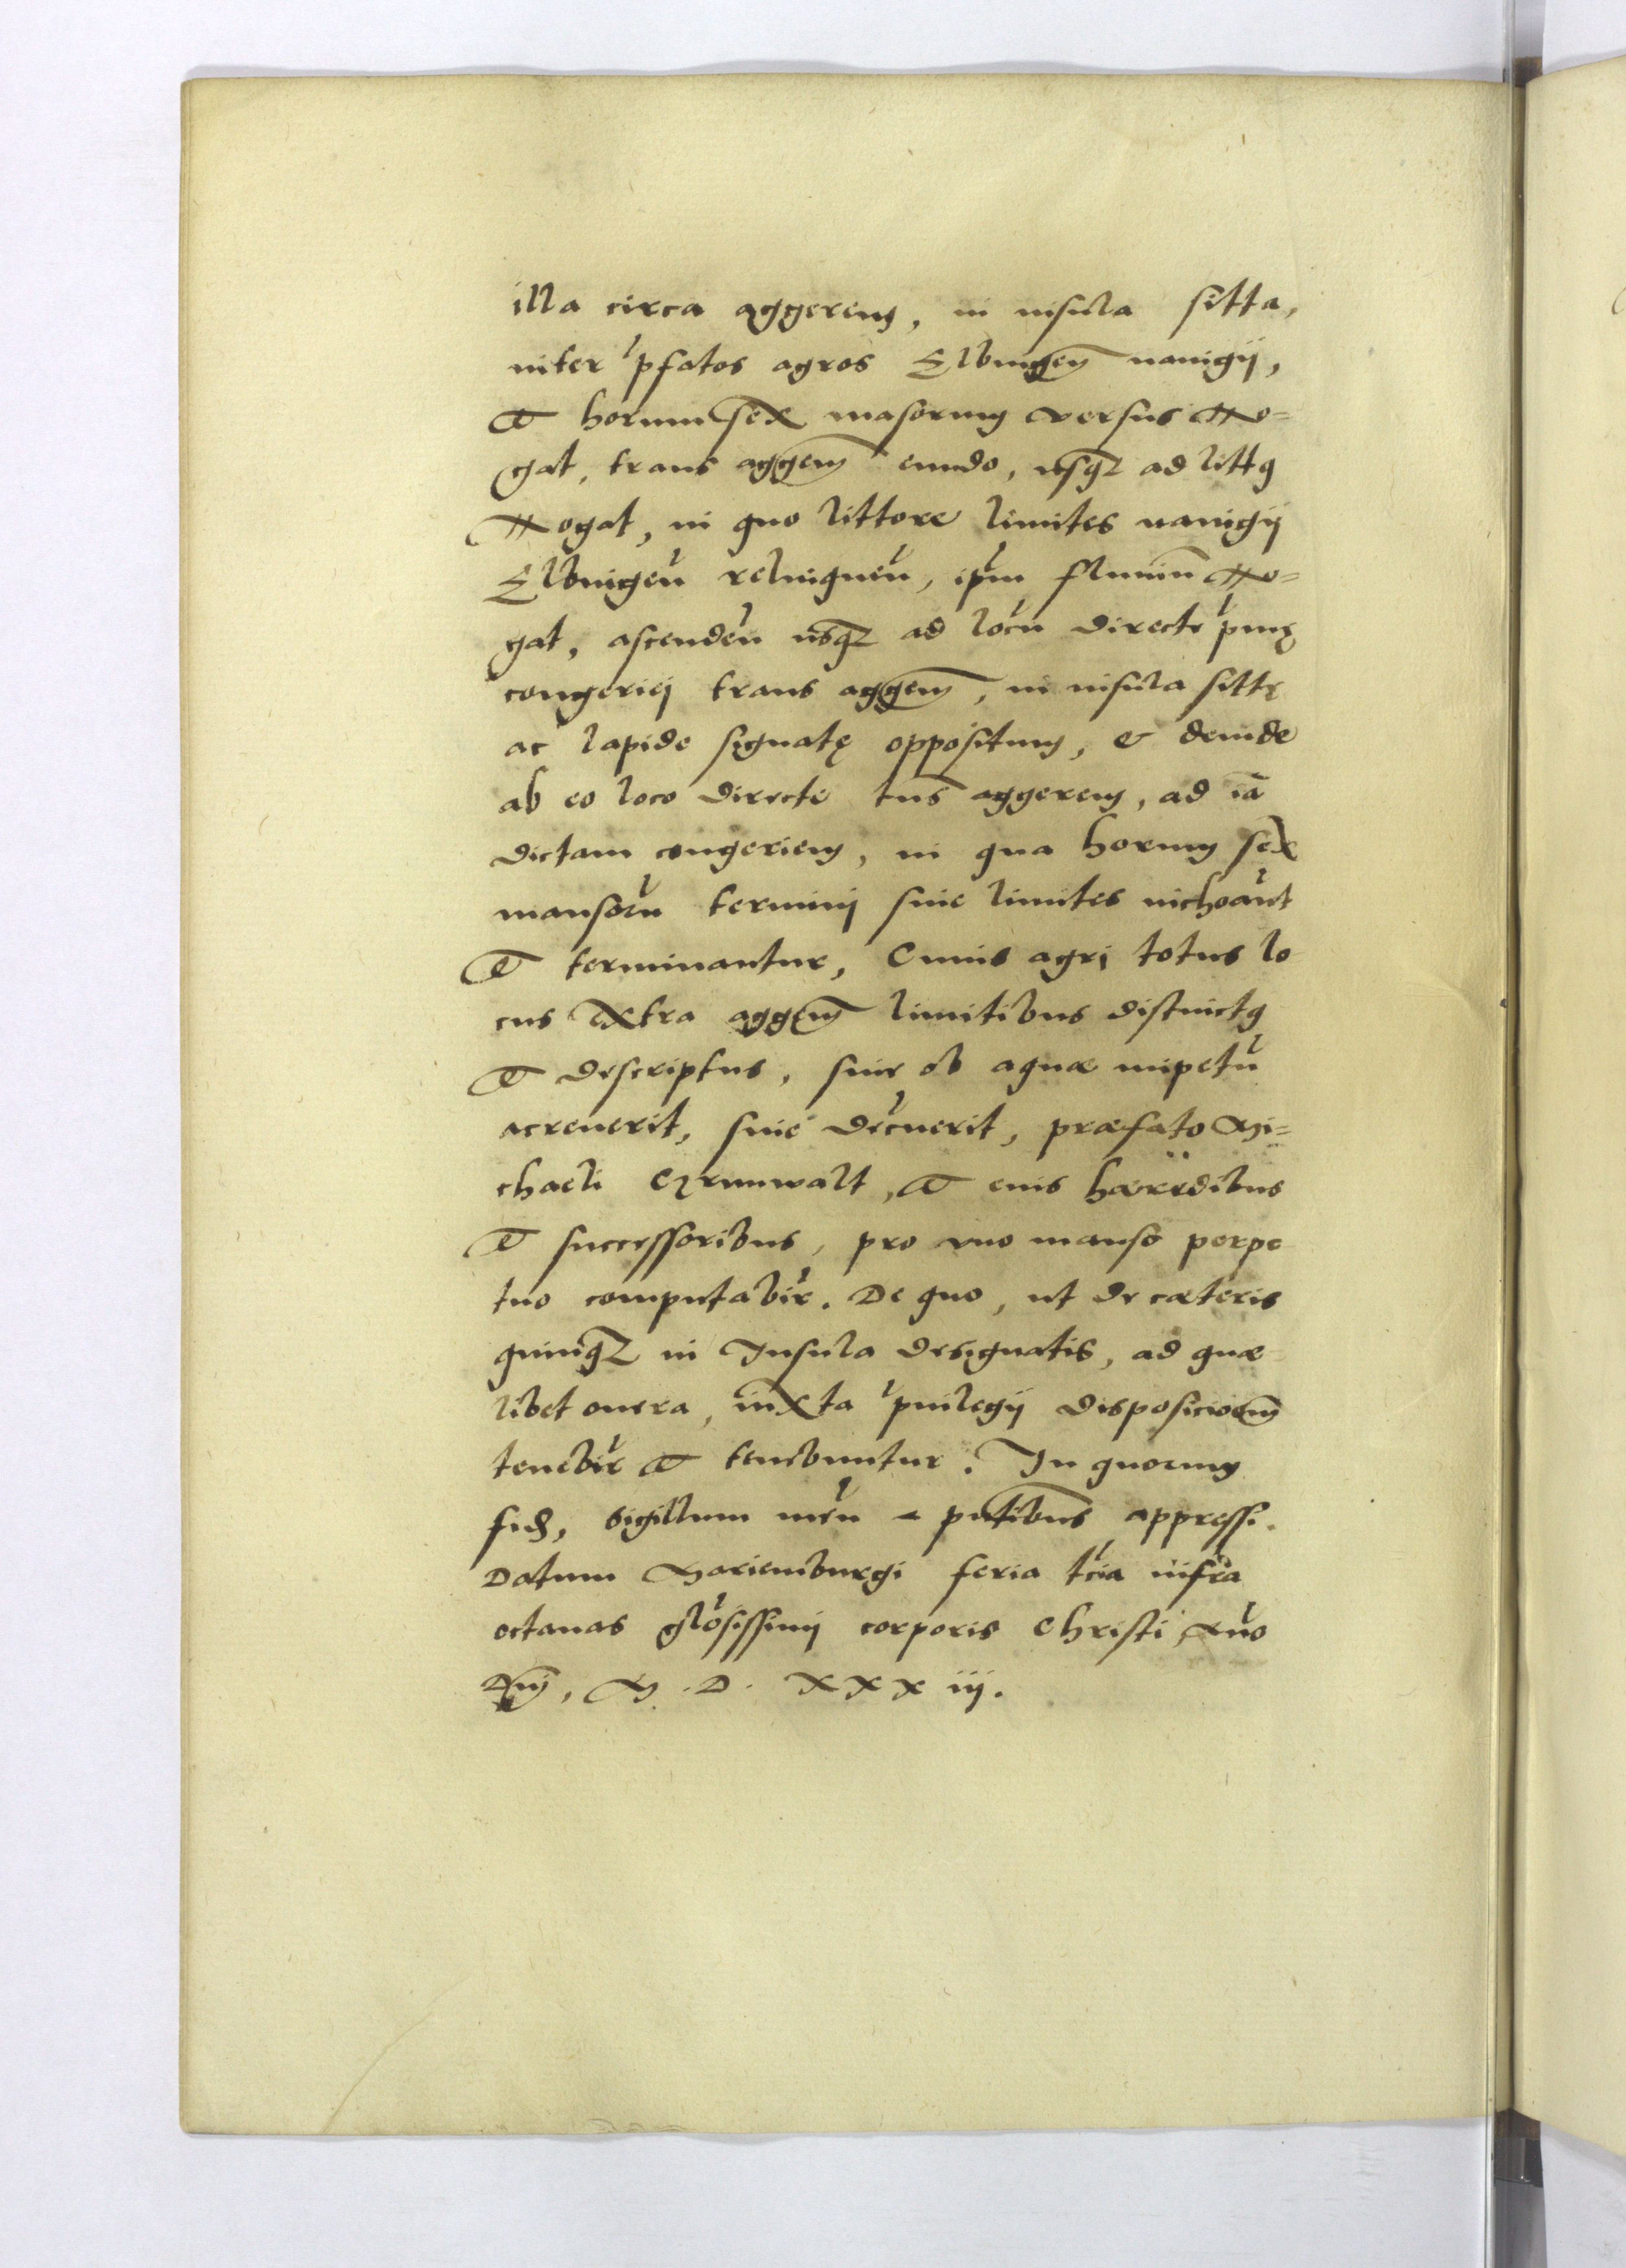 illa circa aggerem, in insula sitta,
inter p̄fatos agros Elbingeñ nauigij,
et horum sex masorum versus No=
gat, trans aggem̄ eundo, usq₃ ad littꝰ
Nogat, in quo littore limites nauigij
Elbingeñ relinqueñ, ip̄m fluuiū No=
gat, ascendeñ usq₃ ad locū directe p̄mę
congeriej trans aggem̄, in insula sittę
ac lapide signatę oppositum, & deinde
ab eo loco directe tns̄ aggerem, ad iā
dictam congeriem, in qua horum sex
mansorū terminj siue limites inchoāt
et terminantur, Cuius agrj totus lo
cus extra aggem̄ limitibus distinctꝰ
et descriptus, siue ob aquæ impetū
acreuerit, siue dec̄uerit, præfato Mi=
chaeli Grunwalt, et eius hæredibus
et successoribus, pro vno manso perpe
tuo computabit̄. De quo, ut de cæteris
quinq₃ in Insula designatis, ad quæ
libet onera, iuxta p̄uilegij disposicioem̄
tenebit̄ et tenebuntur. In quorum
fid̄, sigillum meū p̄ntibus appressi.
Datum Mariemburgi feria t̄cia infrà
octauas glo̅sissimj corporis Christi Año
Dn̄j, M. D. XXX iij.